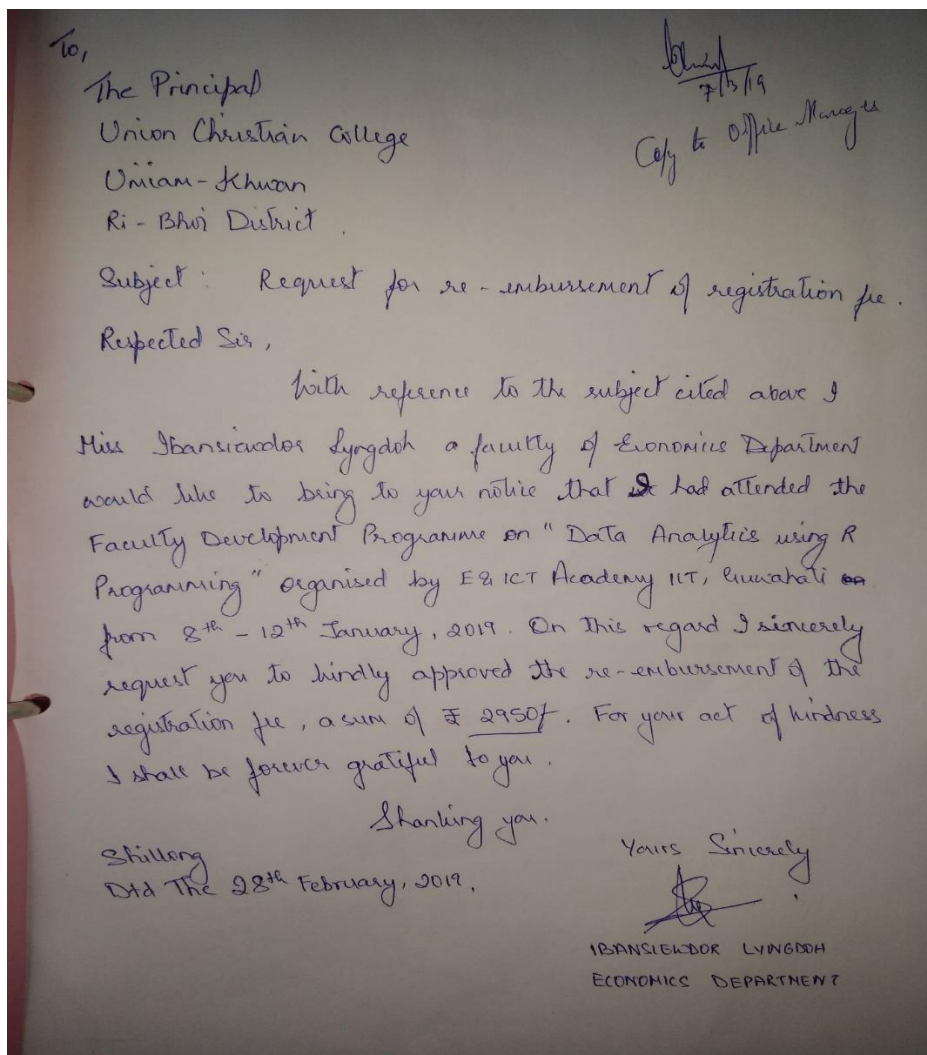 To,
The Principal
Union Christian College
Umiam - Khwan
Ri - Bhoi District.
7/3/19
Copy to Office Manager
Subject : Request for re-embursement of registration fee.
Respected Sir,
With reference to the subject cited above I
Miss Ibansiewdor Lyngdoh a faculty of Economics Department
would like to bring to your notice that I had attended the
Faculty Development Programme on "Data Analytics using R
Programming" organised by E&ICT Academy IIT, Guwahati
from 8th - 12th January, 2019. On this regard I sincerely
request you to kindly approved the re-embursement of the
registration fee, a sum of ₹ 2950/-. For your act of kindness
I shall be forever grateful to you.
Thanking you.
Shillong
Dtd The 28th February, 2019.
Yours Sincerely
IBANSIEWDOR LYNGDOH
ECONOMICS DEPARTMENT